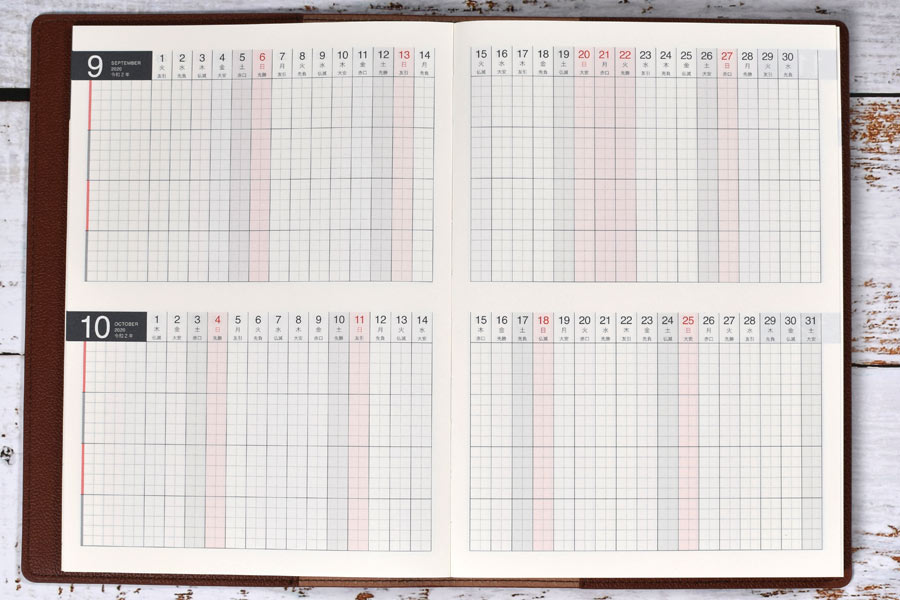 9
SEPTEMBER
2020
令和2年
1 2 3 4 5 6 7 8 9 10 11 12 13 14
火 水 木 金 土 日 月 火 水 木 金 土 日 月
友引 先負 仏滅 大安 赤口 先勝 友引 先負 仏滅 大安 赤口 先勝 友引 先負
15 16 17 18 19 20 21 22 23 24 25 26 27 28 29 30
火 水 木 金 土 日 月 火 水 木 金 土 日 月 火 水
仏滅 大安 友引 先負 仏滅 大安 赤口 先勝 友引 先負 仏滅 大安 赤口 先勝 友引 先負
10
OCTOBER
2020
令和2年
1 2 3 4 5 6 7 8 9 10 11 12 13 14
木 金 土 日 月 火 水 木 金 土 日 月 火 水
仏滅 大安 赤口 先勝 友引 先負 仏滅 大安 赤口 先勝 友引 先負 仏滅 大安
15 16 17 18 19 20 21 22 23 24 25 26 27 28 29 30 31
木 金 土 日 月 火 水 木 金 土 日 月 火 水 木 金 土
赤口 先勝 先負 仏滅 大安 赤口 先勝 友引 先負 仏滅 大安 赤口 先勝 友引 先負 仏滅 大安